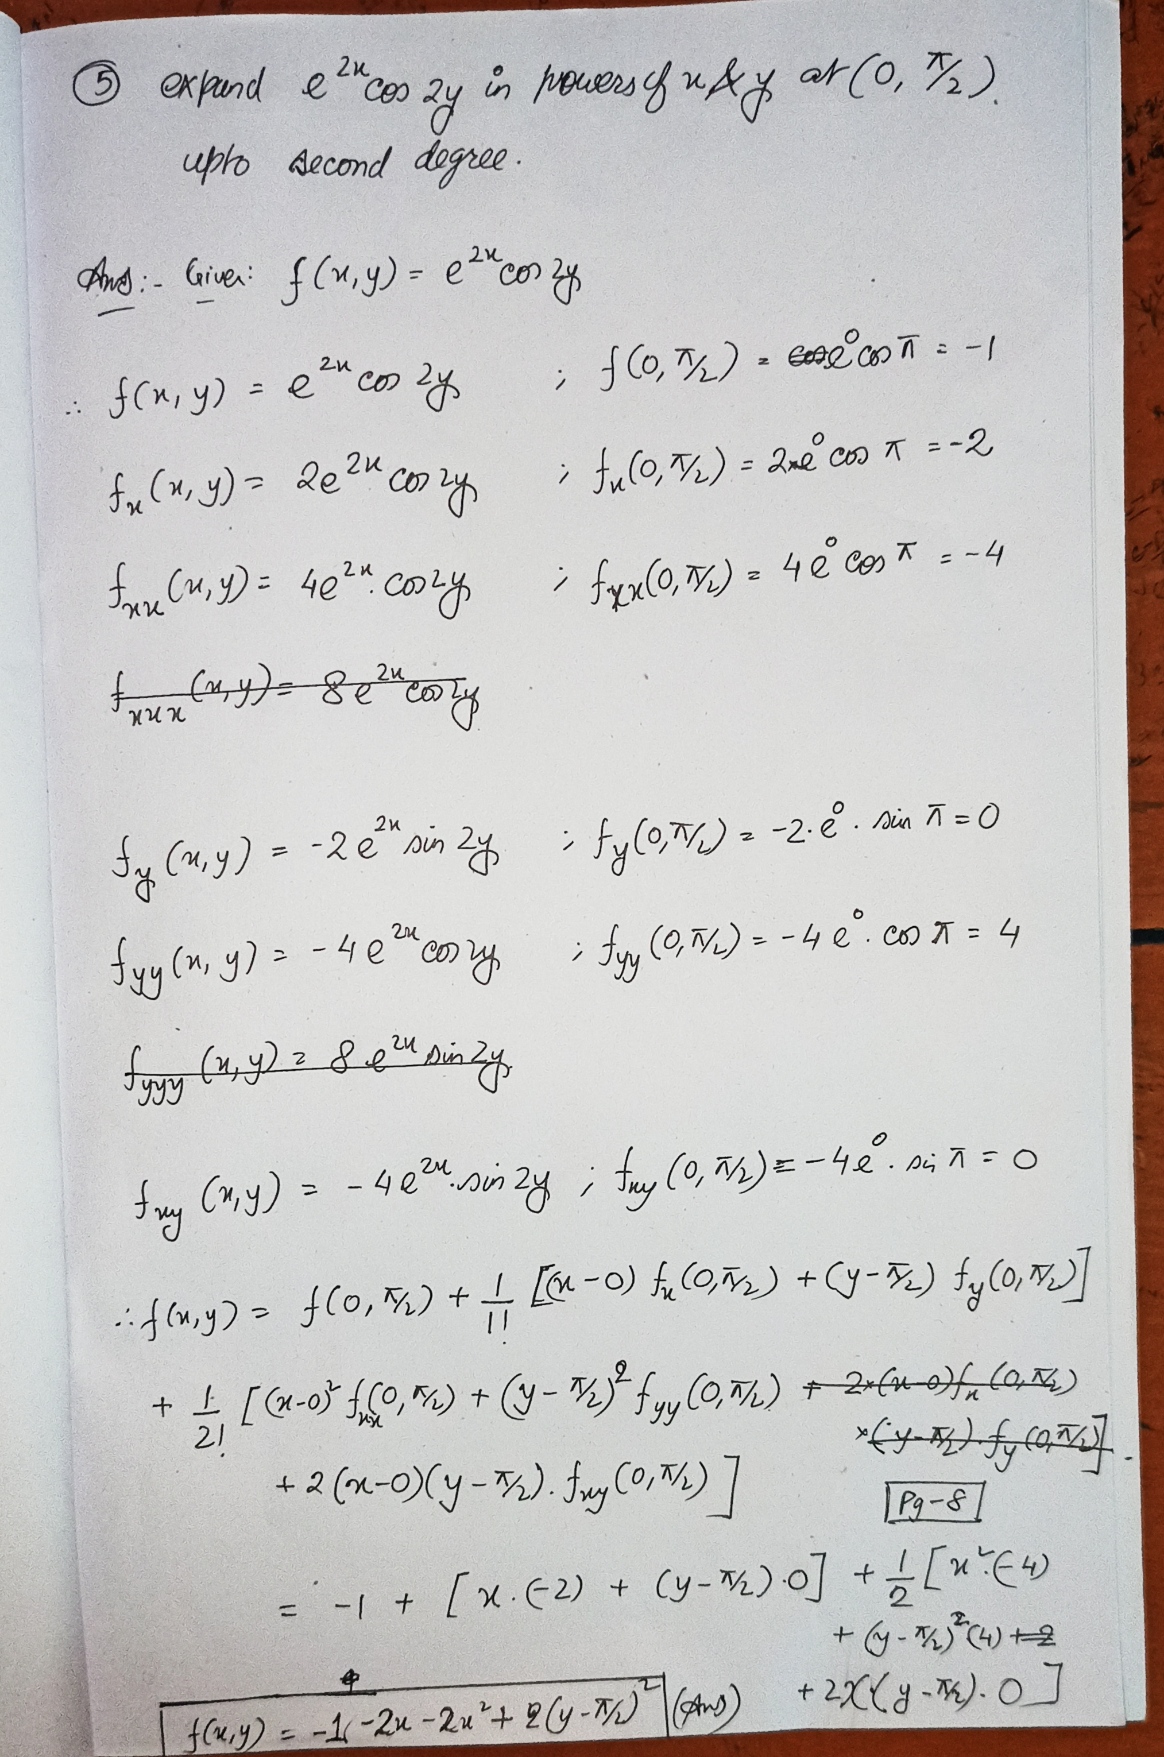 ⑤ expand e^{2x} cos 2y in powers of x & y at (0, π/2).
upto second degree.
Ans:- Given: f(x,y) = e^{2x} cos 2y
∴ f(x,y) = e^{2x} cos 2y ; f(0, π/2) = e^0 cos π = -1
f_x(x,y) = 2e^{2x} cos 2y ; f_x(0, π/2) = 2×e^0 cos π = -2
f_xx(x,y) = 4e^{2x}. cos 2y ; f_xx(0, π/2) = 4e^0 cos π = -4
f_xxx(x,y) = 8e^{2x} cos 2y
f_y(x,y) = -2e^{2x} sin 2y ; f_y(0, π/2) = -2.e^0. sin π = 0
f_yy(x,y) = -4e^{2x} cos 2y ; f_yy(0, π/2) = -4e^0. cos π = 4
f_yyy(x,y) = 8e^{2x} sin 2y
f_xy(x,y) = -4e^{2x}. sin 2y ; f_xy(0, π/2) = -4e^0. sin π = 0
∴ f(x,y) = f(0, π/2) + 1/1! [(x-0) f_x(0, π/2) + (y-π/2) f_y(0, π/2)]
+ 1/2! [(x-0)² f_xx(0, π/2) + (y-π/2)² f_yy(0, π/2) + 2×(x-0)f_x(0, π/2)
×(y-π/2). f_y(0, π/2)].
+ 2(x-0)(y-π/2). f_xy(0, π/2)]
Pg-8
= -1 + [x.(-2) + (y-π/2).0] + 1/2 [x².(-4)
+ (y-π/2)²(4) + 2
+ 2x(y-π/2). 0]
f(x,y) = -1 -2x -2x² + 2(y-π/2)² (Ans)